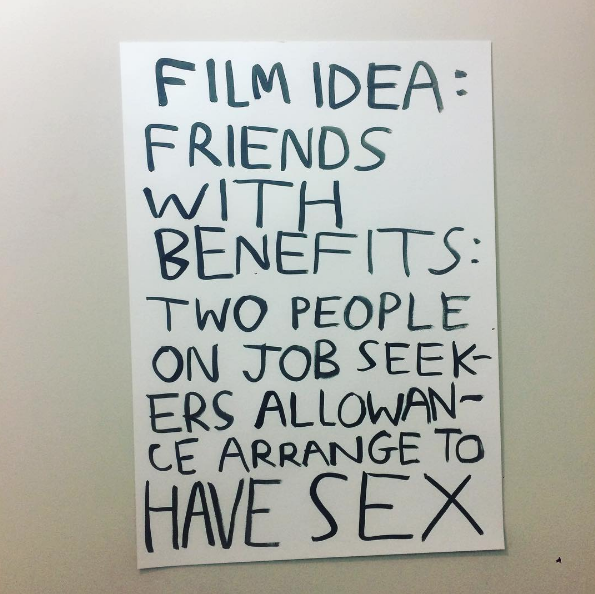 FILM IDEA:
FRIENDS
WITH
BENEFITS:
TWO PEOPLE
ON JOB SEEK-
ERS ALLOWAN-
CE ARRANGE TO
HAVE SEX